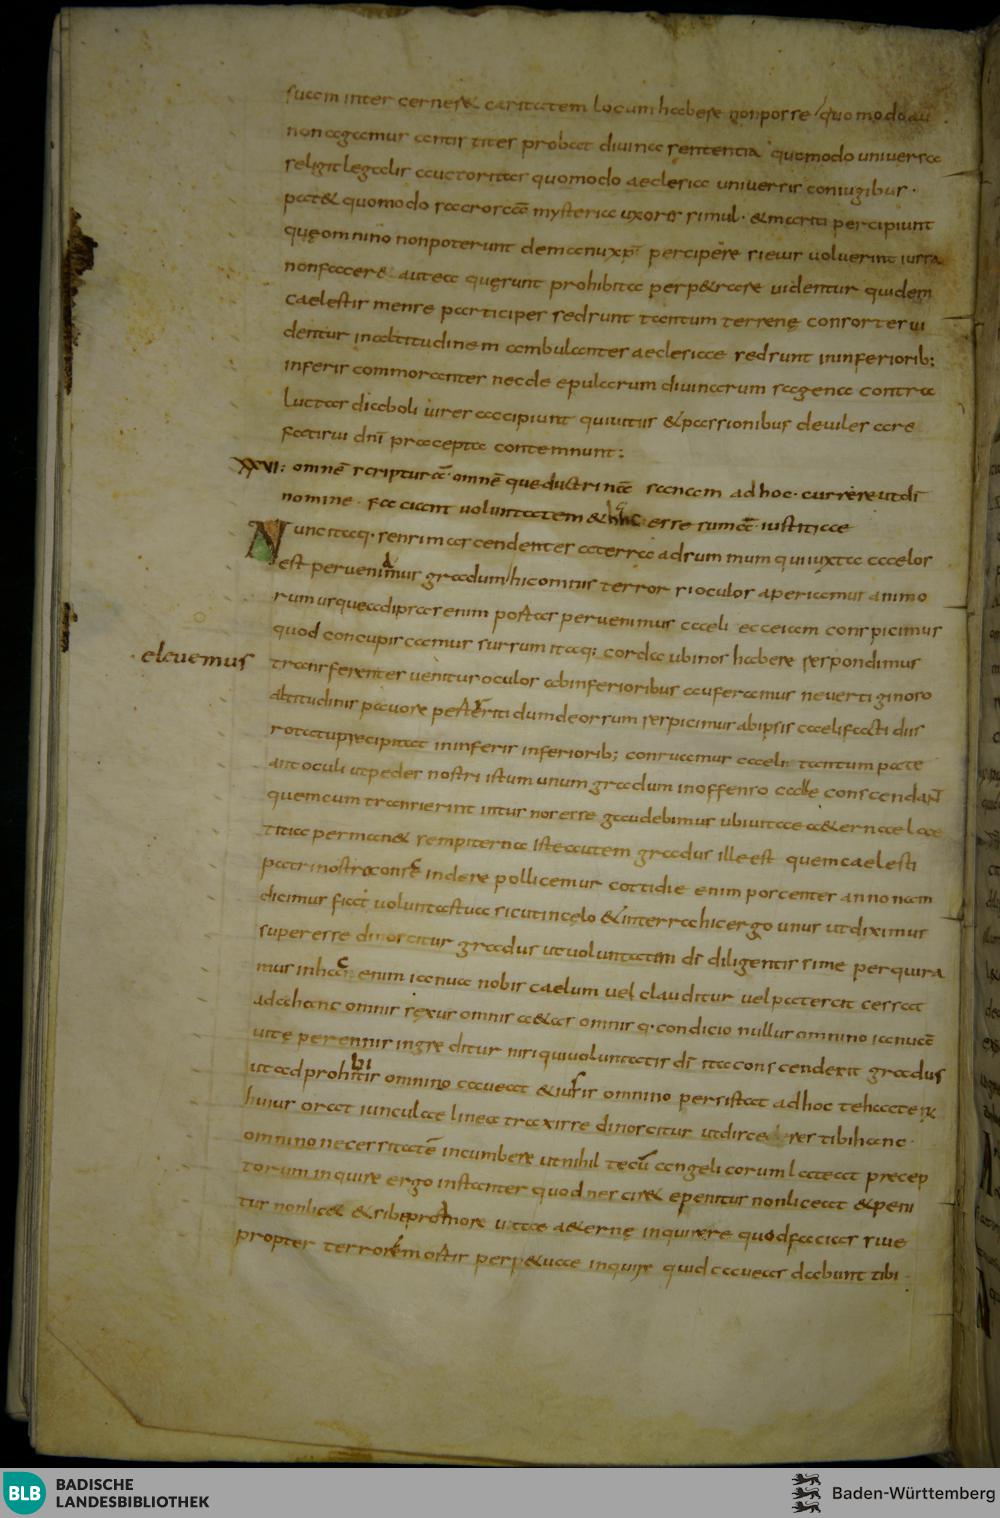 suam inter carnes & caritatem locum habere nonposse / quomodo au
non agamur antistites probat divina sententia quomodo universa
religit legalis auctoritas quomodo aeclesia universis coniugibus ·
pat& quomodo sacrosca mysteria uxores simul · & mariti percipiunt
quę omnino nonpoterunt de manu xpi percipere si eius voluerint iussa
non facere autea quęrunt prohibita perp&rare videntur quidem
caelestis mense participes sed sunt tantum terrenę consortes vi
dentur in altitudinem ambulantes aeclesiae sed sunt in inferiorib;
inferis commorantes nec de epularum divinarum sagena contra
luctas diaboli vires accipiunt qui vitiis & passionibus deviles ace
factis vi dnī praecepta contemnunt :
XXVI : omnē scripturā · omnē que ductrinā sanam ad hoc · currere ut dī
nomine · faciant voluntatem & hanc esse sumā · iustitiae
Nunc itaq · sensim ascendentes a terra ad summum qui iuxta caelos
est pervenimus gradum / hic omnis terror si oculos aperiamus animo
rum usque ad ipsas enim postas pervenimus caeli ecce iam conspicimus
quod concupiscamus sursum itaq; corda ubi nos habere respondimus
· elevemus
transferentes venitus oculos ab inferioribus auferamus ne vertiginoso
altitudinis pavore perterriti dum deorsum respicimus ab ipsis caeli factidiis
rota tu precipitat in inferis inferiorib; conruamus caelis tantum pate
ant oculi ut pedes nostri istum unum gradum inoffenso calle conscendant
quem cum transierint intus nos esse gaudebimus ubi vitae a&ernae lae
titia perman& sempiterna iste autem gradus ille est quem caelesti
patri nostro conscindere pollicemur cottidie enim poscentes annonam
dicimus fiat voluntas tua sicut in cęlo & in terra hic ergo unus ut diximus
superesse dinoscitur gradus ut voluntatem dī diligentissime perquira
mus in hac enim ianua nobis caelum vel clauditur vel patescit cessat
ad hanc omnis sexus omnis a&as omnis q · condicio nullus omnino ianuā
vitę perennis ingreditur nisi qui voluntatis dī ita conscenderit gradus
ut ad prohibitis omnino caveat & iussis omnino persistat ad hoc te hactenus
huius orat iunculae linea traxisse dinoscitur ut disceres tibi hanc ·
omnino necessitatē incumbere ut nihil tecū angelicorum lateat precep
torum inquire ergo instanter quod nescire& epenitus non liceat & peni
tus non lice& & sibi pro amore vitae a&ernę inquirere quod facias sive
propter terrorem ostis perp&uae inquire quid caveas dabunt tibi ·
BLB
BADISCHE
LANDESBIBLIOTHEK
Baden-Württemberg